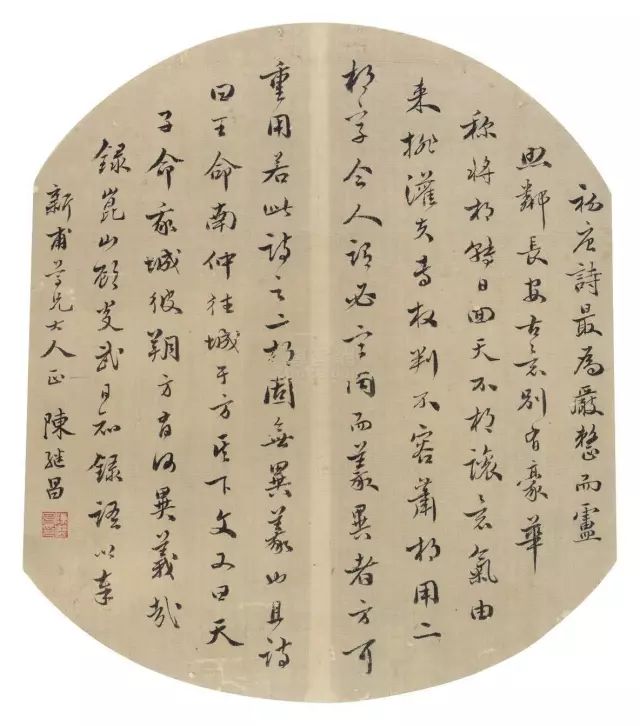 初唐詩最為嚴整而盧
照鄰長安古意別有豪華
稱將相轉日回天不相讓意氣由
來排灌夫專权判不容蕭相用二
相字今人謂必字同而義異者方可
重用若此詩之二相固無異義也且詩
曰王命南仲往城于方其下文又曰天
子命我城彼朔方有何異義哉
錄崑山顧炎武日知錄語以奉
新甫尊兄大人正 陳继昌